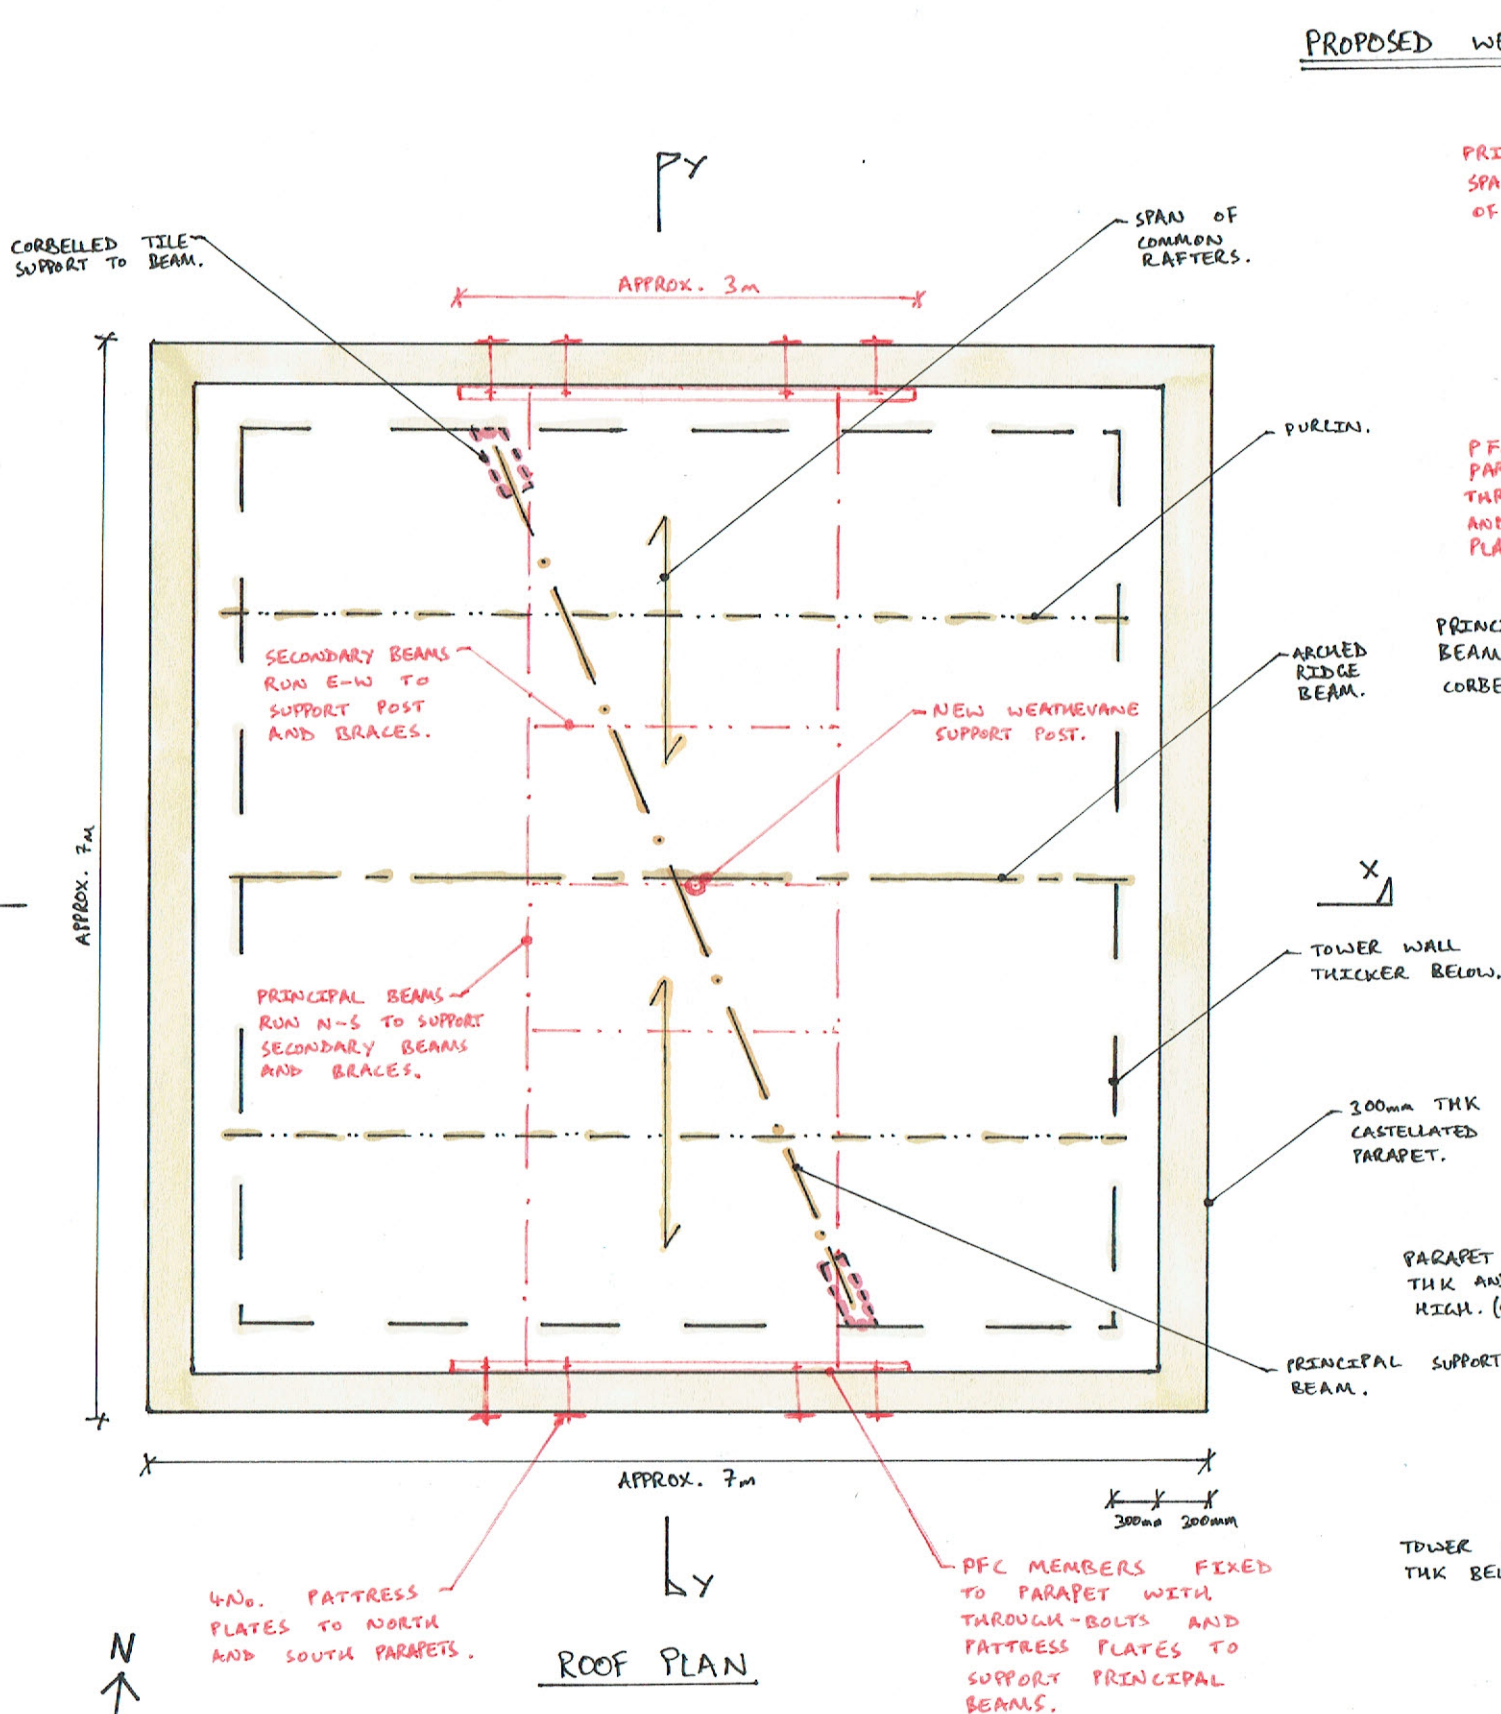 PROPOSED WE
Y
PRI
SPA
OF
CORBELLED TILE
SUPPORT TO BEAM.
SPAN OF
COMMON
RAFTERS.
APPROX. 3m
PURLIN.
PF
PAR
THR
AND
PLA
SECONDARY BEAMS
RUN E-W TO
SUPPORT POST
AND BRACES.
NEW WEATHEVANE
SUPPORT POST.
ARCHED
RIDGE
BEAM.
PRINCI
BEAM
CORBE
APPROX. 7m
X
TOWER WALL
THICKER BELOW.
PRINCIPAL BEAMS
RUN N-S TO SUPPORT
SECONDARY BEAMS
AND BRACES.
300mm THK
CASTELLATED
PARAPET.
PARAPET
THK AN
HIGH. (
PRINCIPAL SUPPORT
BEAM.
APPROX. 7m
300mm 300mm
TOWER
THK BEL
Y
4No. PATTRESS
PLATES TO NORTH
AND SOUTH PARAPETS.
PFC MEMBERS FIXED
TO PARAPET WITH
THROUGH-BOLTS AND
PATTRESS PLATES TO
SUPPORT PRINCIPAL
BEAMS.
N
ROOF PLAN